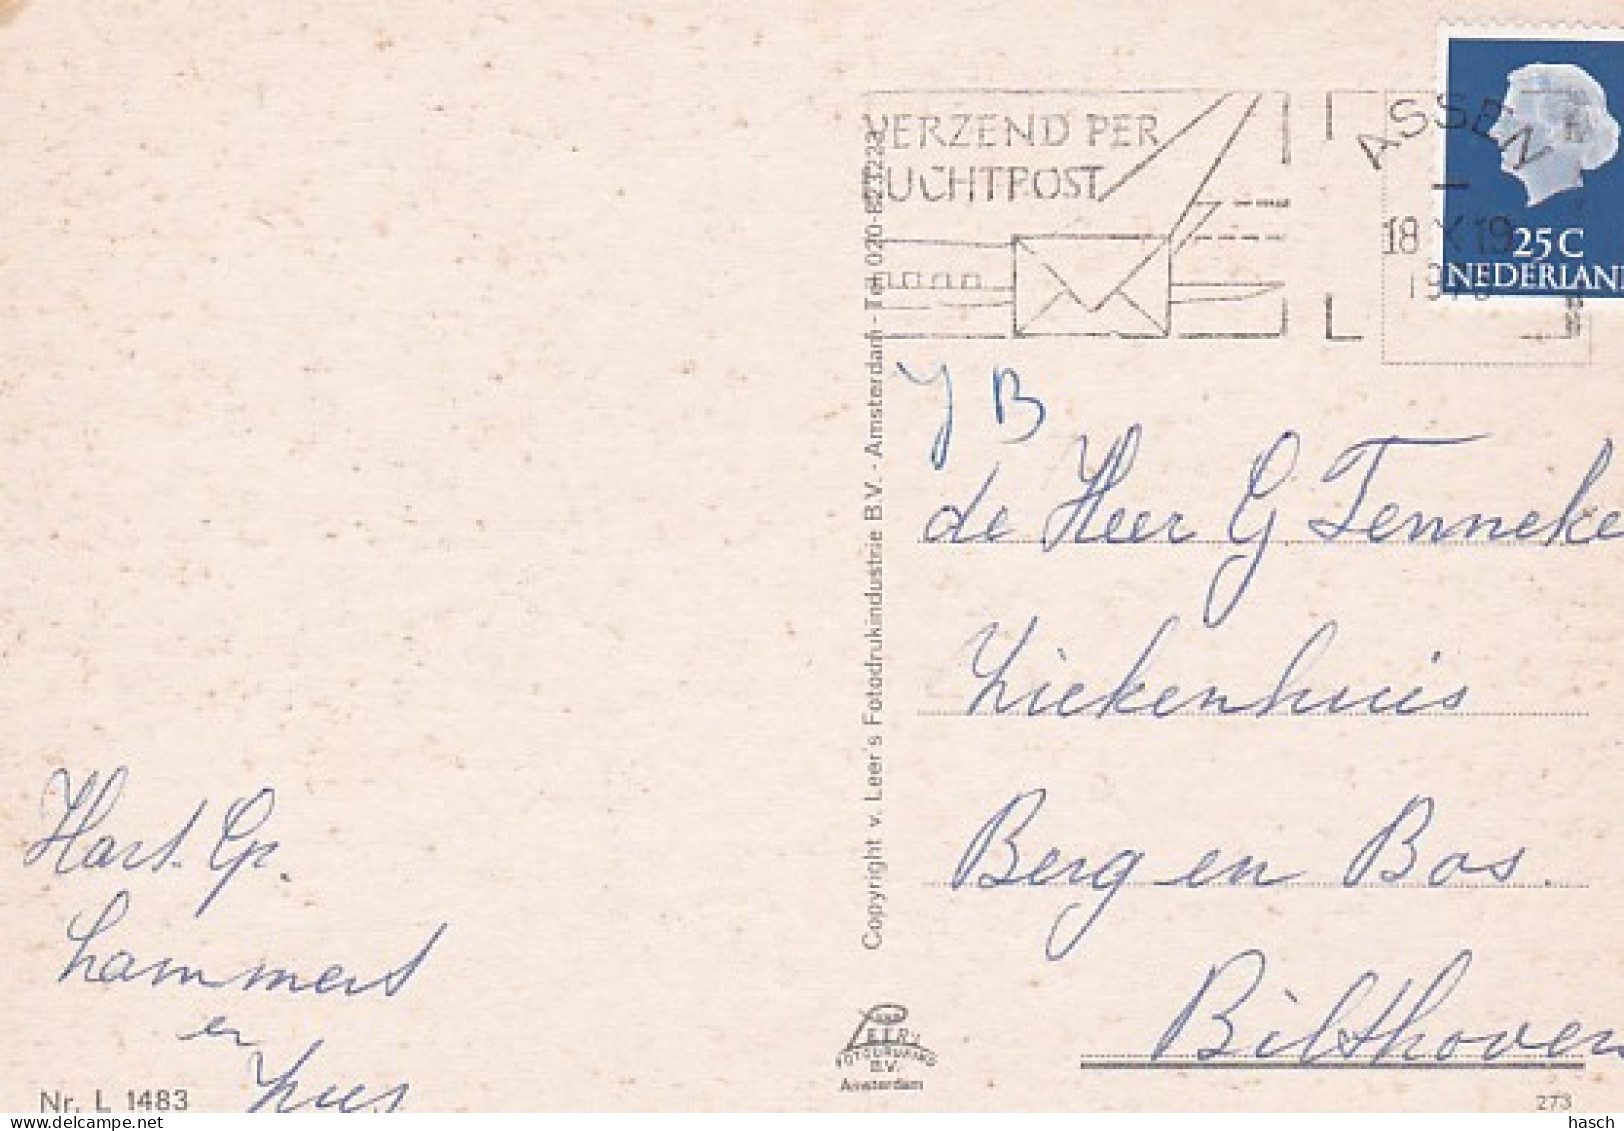 VERZEND PER
LUCHTPOST
ASSEN
18 X 19
25 C
NEDERLAND
Y B
de Heer G Tenneke
Ziekenhuis
Berg en Bos.
Bilthoven
Hart. Gr.
Lammert
en
Nr. L 1483
Copyright v. Leer's Fotodrukindustrie B.V. - Amsterdam - Tel. 020-823223
LEER's
FOTODRUKIND
B.V.
Amsterdam
273
hasch